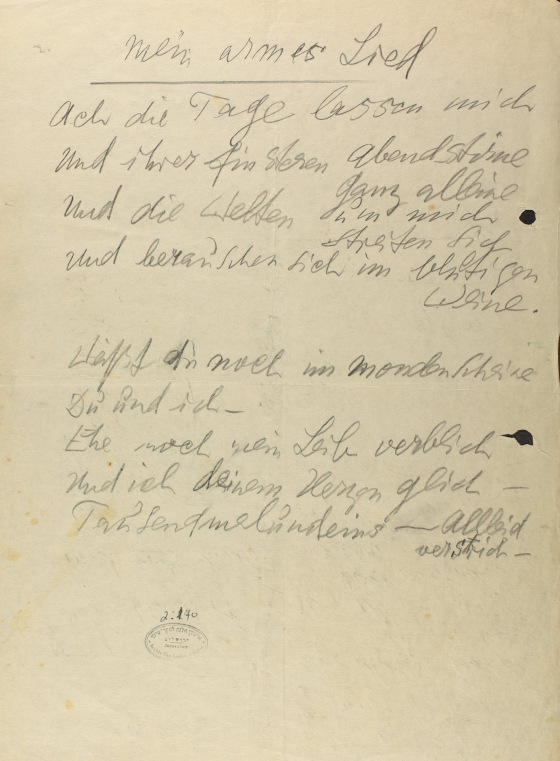 2.
Mein armes Lied
Ach die Tage lassen mich
und ihrer finsteren Abendstirne
ganz alleine
und die Welten um mich
streiten sich
und berauschen sich im blutigen
Weine.
Weißt du noch im Mondenscheine
Du und ich –
Ehe noch mein Leib verblich
und ich deinem Herzen glich –
Tausendmalundeins – Allleid
verstrich –
2:140